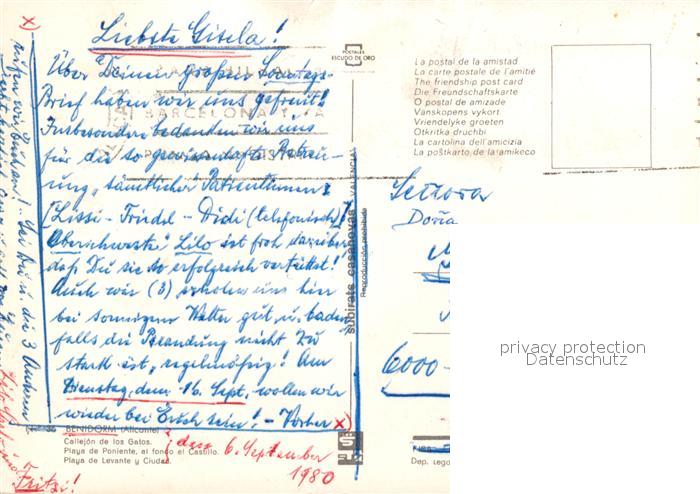 x)
Liebste Gisela!
Über Deinen großen Sonntags-
Brief haben wir uns gefreut!
Insbesondere bedanken wir uns
für die so gewissenhafte Betreu-
ung "sämtlicher" Patientinnen:
(Lissi - Friedel - Didi (telefonisch)!
"Oberschwester" Lilo ist froh darüber
daß Du sie so erfolgreich vertrittst!
Auch wir (3) erholen uns hier
bei sonnigem Wetter gut, u. baden
falls die Brandung nicht zu
stark ist, "regelmäßig"! Am
Dienstag, dem 16. Sept., wollen wir
wieder bei Euch sein! - Vorher x)
rufen wir an! - Sei Du u. die 3 Anderen
Fritzi!
BENIDORM (Alicante)
Callejón de los Gatos.
Playa de Poniente, al fondo el Castillo.
Playa de Levante y Ciudad.
den 6. September
1980
BARCELONA
POSTALES
ESCUDO DE ORO
subirats casanovas
VALENCIA
Reproducción prohibida
La postal de la amistad
La carte postale de l'amitié
The friendship post card
Die Freundschaftskarte
O postal de amizade
Vanskopens vykort
Vriendelyke groeten
Otkritka druchbi
La cartolina dell'amicizia
La poštkarto de la amikeco
Señora
6000
Dep. Lego
privacy protection
Datenschutz